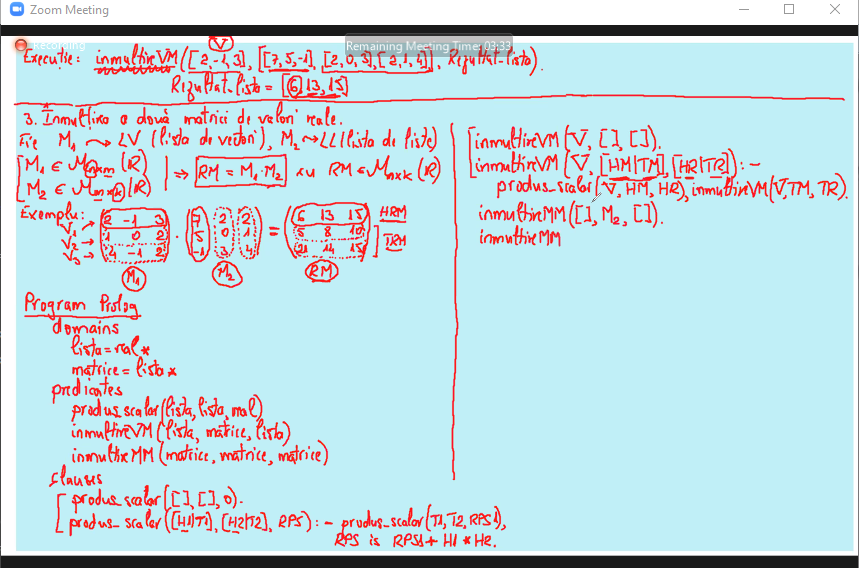 Zoom Meeting
Recording
Remaining Meeting Time: 03:33
V
Execuție: inmultireVM([2,-1,3], [[7,5,-1],[2,0,3],[2,1,4]], Rezultat_lista).
Rezultat_lista = [6,13,15]
3. Înmulțirea a două matrici de valori reale.
Fie M1 ⤳ LV (lista de vectori), M2 ⤳ LL (lista de liste)
M1 ∈ Mnxm (R)
M2 ∈ Mmxk (R)
⇒ RM = M1·M2 cu RM ∈ Mnxk (R)
Exemplu:
V1 → 2 -1 3
V2 → 1 0 2
V3 → 4 -1 2
M1
·
7 2 2
5 0 1
-1 3 4
M2
=
6 13 15
5 8 10
21 14 15
RM
HRM
TRM
Program Prolog
domains
lista=real*
matrice=lista*
predicates
produs_scalar(lista,lista,real)
inmultireVM(lista, matrice, lista)
inmultireMM(matrice, matrice, matrice)
clauses
produs_scalar([],[],0).
produs_scalar([H1|T1],[H2|T2],RPS):- produs_scalar(T1,T2,RPS1),
RPS is RPS1+H1*H2.
inmultireVM(V,[],[]).
inmultireVM(V,[HM|TM],[HR|TR]):-
produs_scalar(V,HM,HR),inmultireVM(V,TM,TR).
inmultireMM([],M2,[]).
inmultireMM